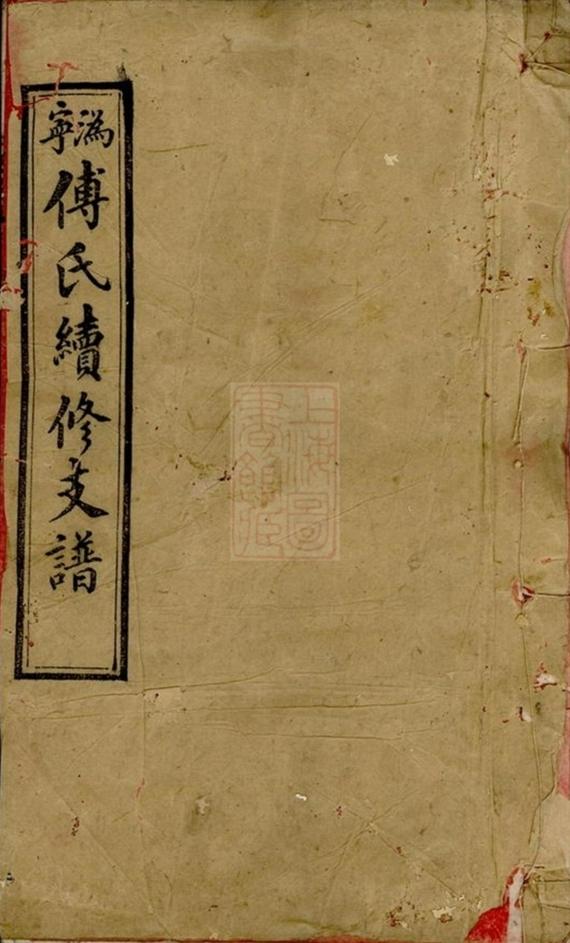 溈寧
傅氏續修支譜
上海圖書館藏